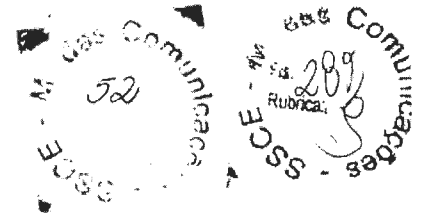 SSCE - M das Comunicaçõ
52
SSCE - M das Comunicações
Fls. 289
Rubrica: